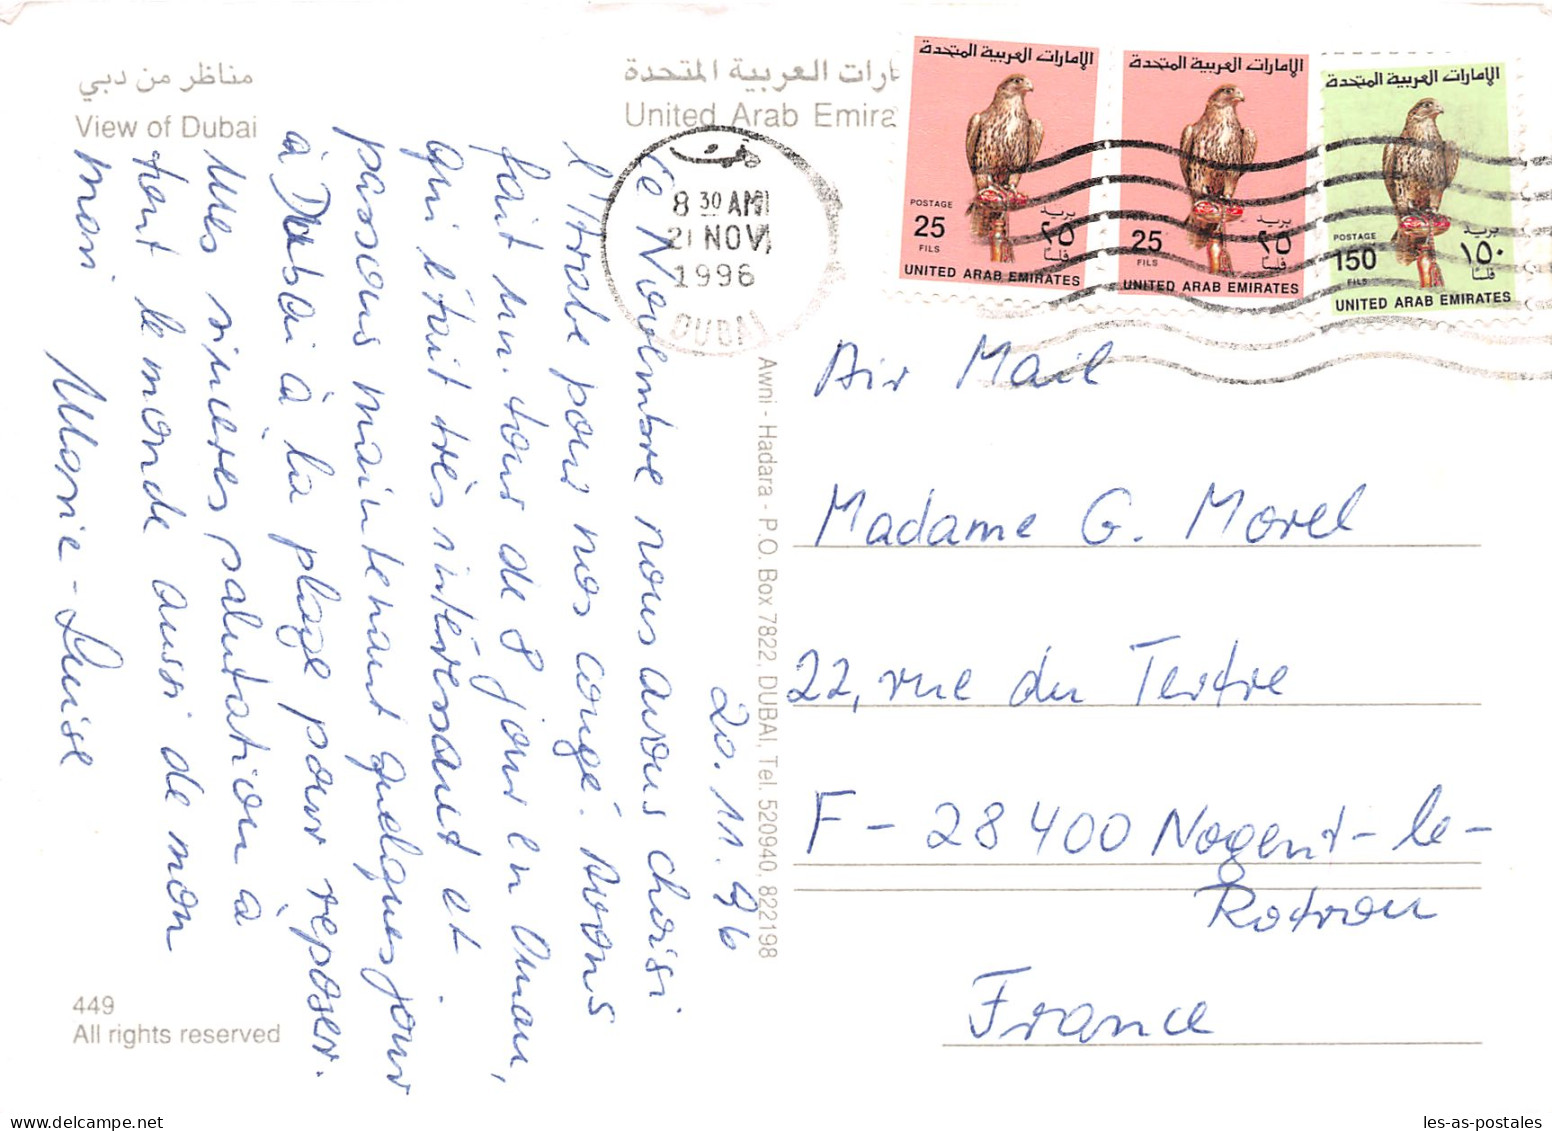 مناظر من دبي
View of Dubai
United Arab Emira
الإمارات العربية المتحدة
POSTAGE
25
FILS
بريد
٢٥
فلسا
UNITED ARAB EMIRATES
الإمارات العربية المتحدة
25
FILS
بريد
٢٥
فلسا
UNITED ARAB EMIRATES
الإمارات العربية المتحدة
POSTAGE
150
FILS
بريد
١٥٠
فلسا
UNITED ARAB EMIRATES
8 30 AM
21 NOV
1996
DUBAI
20.11.96
Ce Novembre nous avons choisi
l'Arabe pour nos congé. Avons
fait un tour de 8 jour en Oman,
qui était très intéressant et
passons maintenant quelques jour
à Dubai à la plage pour reposer.
Mes sincères salutation à
tout le monde aussi de mon
mari
Marie-Luise
Awni - Hadara - P.O. Box 7822, DUBAI, Tel. 520940, 822198
Air Mail
Madame G. Morel
22, rue du Tertre
F - 28400 Nogent-le-
Rotrou
France
449
All rights reserved
les-as-postales